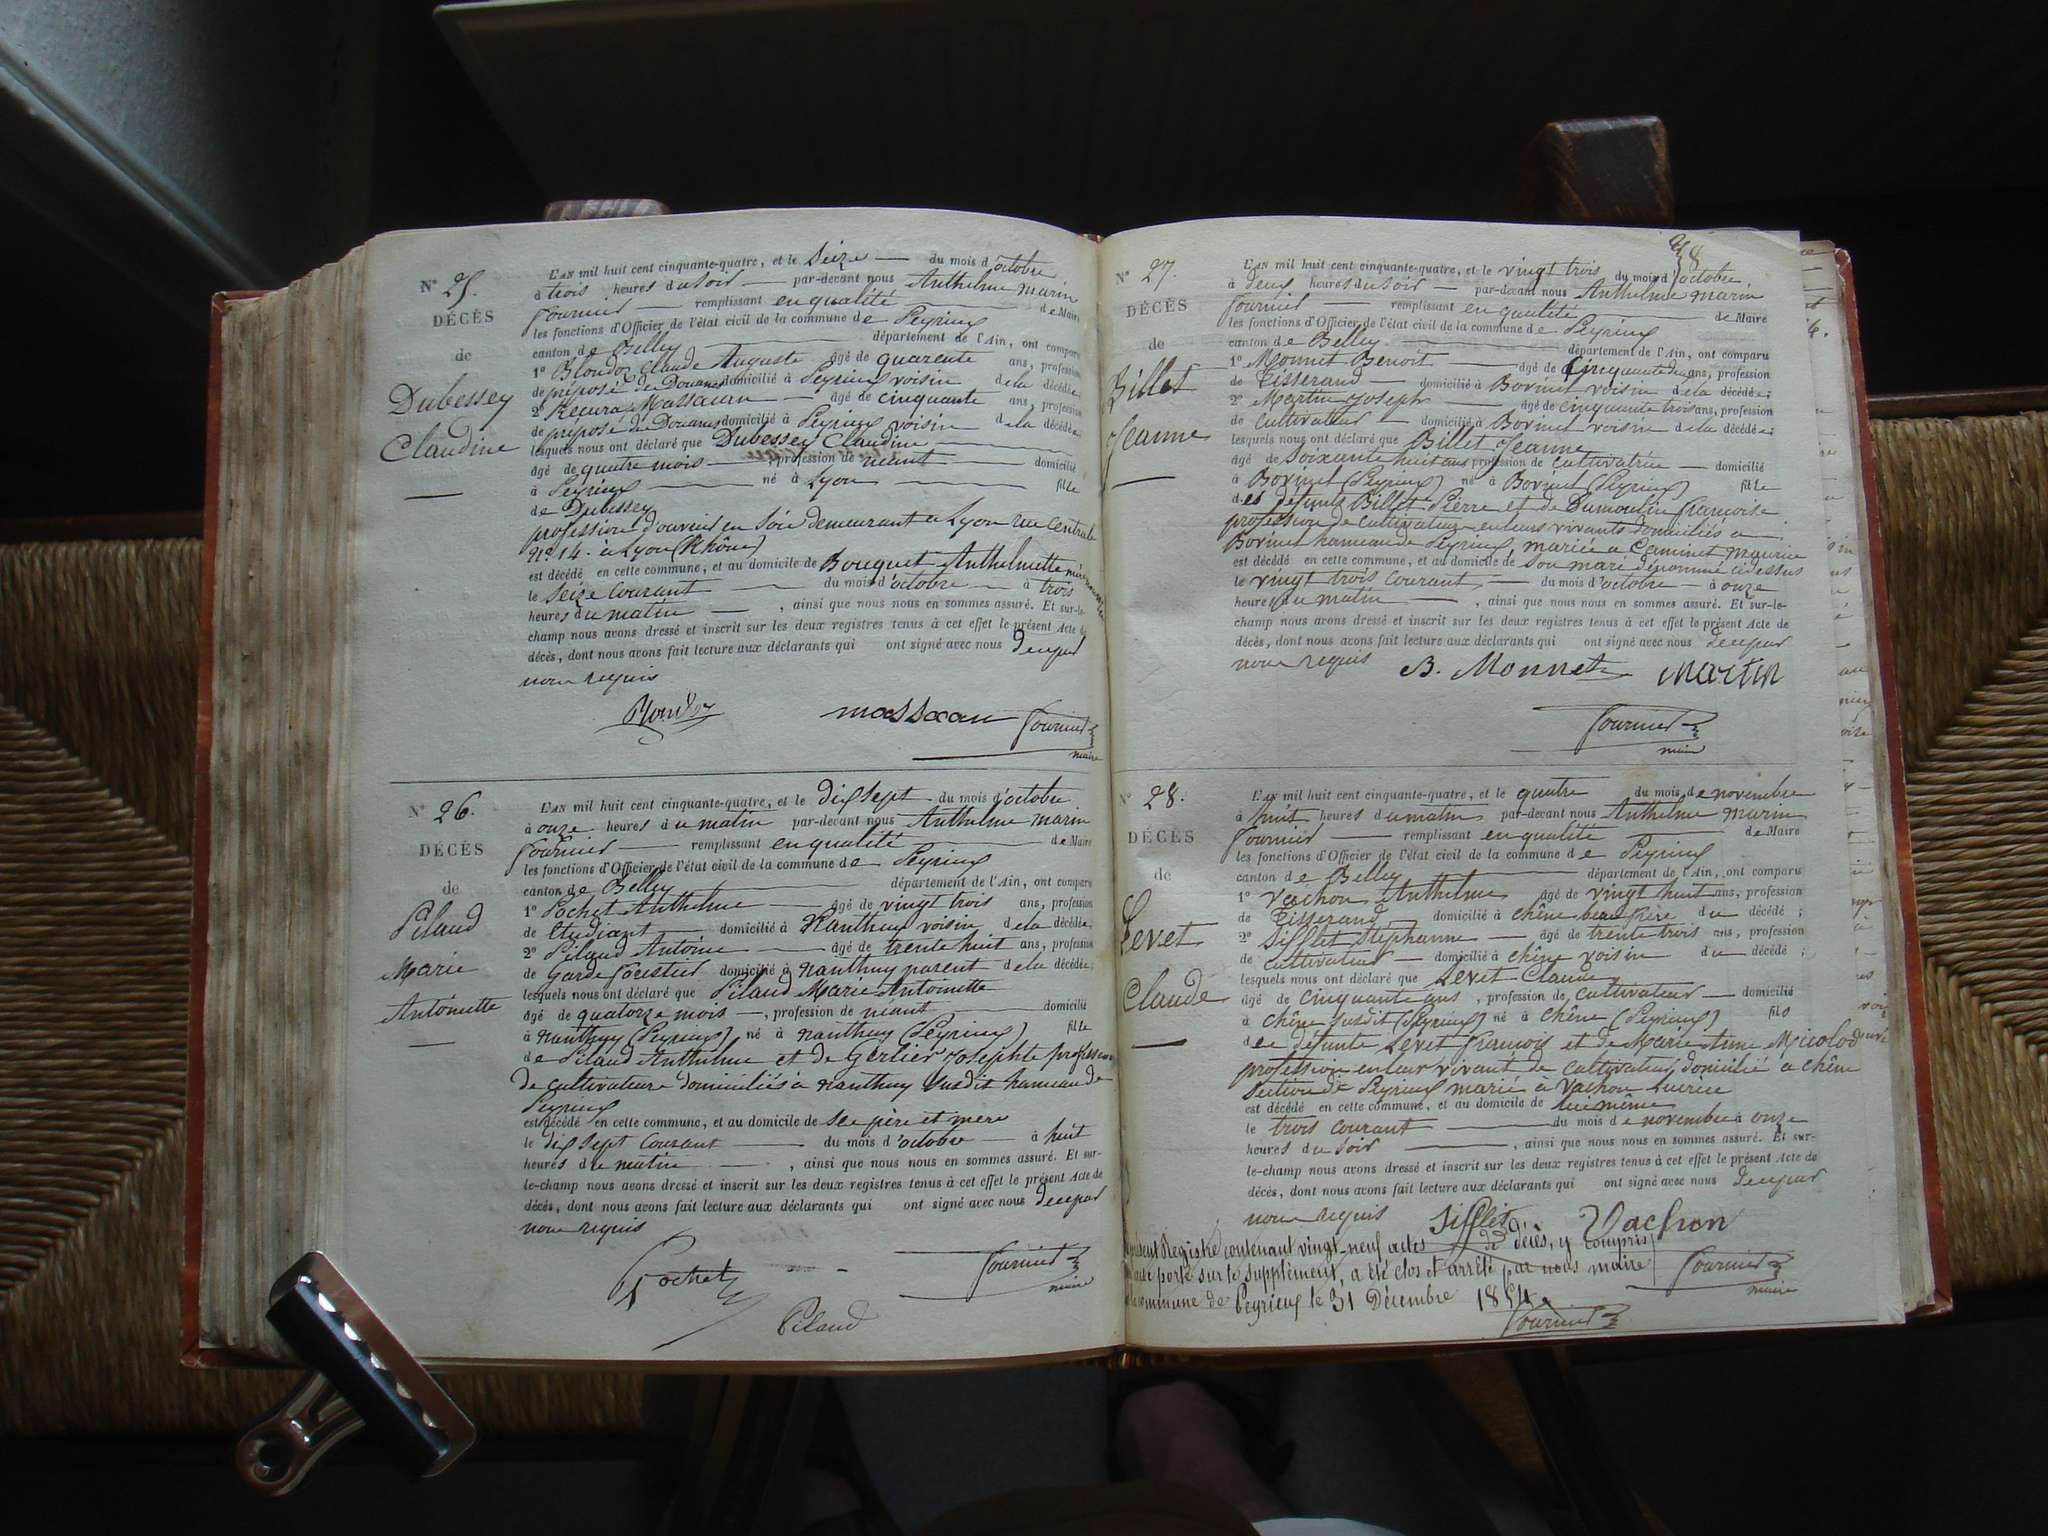 N° 25.
DÉCÈS
de
Dubessey
Claudine
L'AN mil huit cent cinquante-quatre, et le Seize du mois d'octobre
à trois heures du soir par-devant nous Anthelme Marin
Fournier remplissant en qualité de Maire
les fonctions d'Officier de l'état civil de la commune de Peyrieux
canton de Belley département de l'Ain, ont comparu
1° Blondoz Claude Auguste âgé de quarente ans, profession
de préposé de Douanes domicilié à Peyrieux voisin de la décédée,
2° Massacau âgé de cinquante ans, profession
de préposé de Douanes domicilié à Peyrieux voisin de la décédée
lesquels nous ont déclaré que Dubessey Claudine
âgé de quatre mois, profession de néant domicilié
à Peyrieux né à Lyon fille
de Dubessey
profession d'ouvrier en soie demeurant à Lyon rue Centrale
N° 14. à Lyon (Rhône)
est décédé en cette commune, et au domicile de Bouquet Anthelmette
le seize courant du mois d'octobre à trois
heures du matin, ainsi que nous nous en sommes assuré. Et sur-le-
champ nous avons dressé et inscrit sur les deux registres tenus à cet effet le présent Acte de
décès, dont nous avons fait lecture aux déclarants qui ont signé avec nous de ce par
nous requis
massacau Fournier
maire
N° 26.
DÉCÈS
de
Pilaud
Marie
Antoinette
L'AN mil huit cent cinquante-quatre, et le dix sept du mois d'octobre
à onze heures du matin par-devant nous Anthelme Marin
Fournier remplissant en qualité de Maire
les fonctions d'Officier de l'état civil de la commune de Peyrieux
canton de Belley département de l'Ain, ont comparu
1° Pochet Anthelme âgé de vingt trois ans, profession
de Etudiant domicilié à Nanthuy voisin de la décédée,
2° Pilaud Antoine âgé de trente huit ans, profession
de Garde Forestier domicilié à Nanthuy parent de la décédée;
lesquels nous ont déclaré que Pilaud Marie Antoinette
âgé de quatorze mois, profession de néant domicilié
à Nanthuy (Peyrieux) né à Nanthuy (Peyrieux) fille
de Pilaud Anthelme et de Gerlier Josephte profession
de cultivateurs domiciliés à Nanthuy susdit hameau de
Peyrieux
est décédé en cette commune, et au domicile de ses père et mere
le dix sept courant du mois d'octobre à huit
heures du matin, ainsi que nous nous en sommes assuré. Et sur-
le-champ nous avons dressé et inscrit sur les deux registres tenus à cet effet le présent Acte de
décès, dont nous avons fait lecture aux déclarants qui ont signé avec nous de ce par
nous requis
Pochet Fournier
maire
Pilaud
28
N° 27.
DÉCÈS
de
Billet
Jeanne
L'AN mil huit cent cinquante-quatre, et le vingt trois du mois d'octobre
à deux heures du soir par-devant nous Anthelme Marin
Fournier remplissant en qualité de Maire
les fonctions d'Officier de l'état civil de la commune de Peyrieux
canton de Belley département de l'Ain, ont comparu
1° Monnet Benoit âgé de Cinquante deux ans, profession
de Tisserand domicilié à Borinet voisin de la décédée;
2° Martin Joseph âgé de cinquante trois ans, profession
de Cultivateur domicilié à Borinet voisin de la décédée;
lesquels nous ont déclaré que Billet Jeanne
âgé de soixante huit ans profession de cultivatrice domicilié
à Borinet (Peyrieux) né à Borinet (Peyrieux) fille
des défunts Billet Pierre et de Dumoulin Françoise
profession de cultivateurs en leurs vivants domiciliés à
Borinet hameau de Peyrieux, mariée à Caminet Maurice
est décédé en cette commune, et au domicile de son mari dénommé ci dessus
le vingt trois courant du mois d'octobre à onze
heures du matin, ainsi que nous nous en sommes assuré. Et sur-le-
champ nous avons dressé et inscrit sur les deux registres tenus à cet effet le présent Acte de
décès, dont nous avons fait lecture aux déclarants qui ont signé avec nous de ce par
nous requis B. Monnet Martin
Fournier
maire
N° 28.
DÉCÈS
de
Levet
Claude
L'AN mil huit cent cinquante-quatre, et le quatre du mois de novembre
à huit heures du matin par-devant nous Anthelme Marin
Fournier remplissant en qualité de Maire
les fonctions d'Officier de l'état civil de la commune de Peyrieux
canton de Belley département de l'Ain, ont comparu
1° Vachon Anthelme âgé de vingt huit ans, profession
de Tisserand domicilié à chêne beau père du décédé;
2° Sifflet Stephanne âgé de trente trois ans, profession
de cultivateur domicilié à chêne voisin du décédé;
lesquels nous ont déclaré que Levet Claude
âgé de cinquante ans, profession de cultivateur domicilié
à chêne susdit (Peyrieux) né à chêne (Peyrieux) fils
de défunts Levet François et de Marie Anne Micolod
profession en leur vivant de cultivateur domicilié à chêne
section de Peyrieux marié à Vachon
est décédé en cette commune, et au domicile de lui même
le trois courant du mois de novembre à onze
heures du soir, ainsi que nous nous en sommes assuré. Et sur-
le-champ nous avons dressé et inscrit sur les deux registres tenus à cet effet le présent Acte de
décès, dont nous avons fait lecture aux déclarants qui ont signé avec nous de ce par
nous requis Sifflet Vachon
présent Registre contenant vingt-neuf actes de décès, y compris
porté sur le supplément, a été clos et arrêté par nous maire Fournier
commune de Peyrieux le 31 Décembre 1854. maire
Fournier